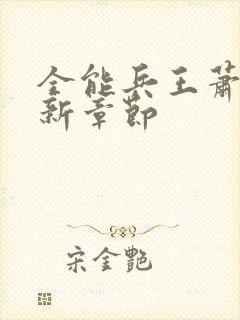 全能兵王萧
新章节
宋金艷